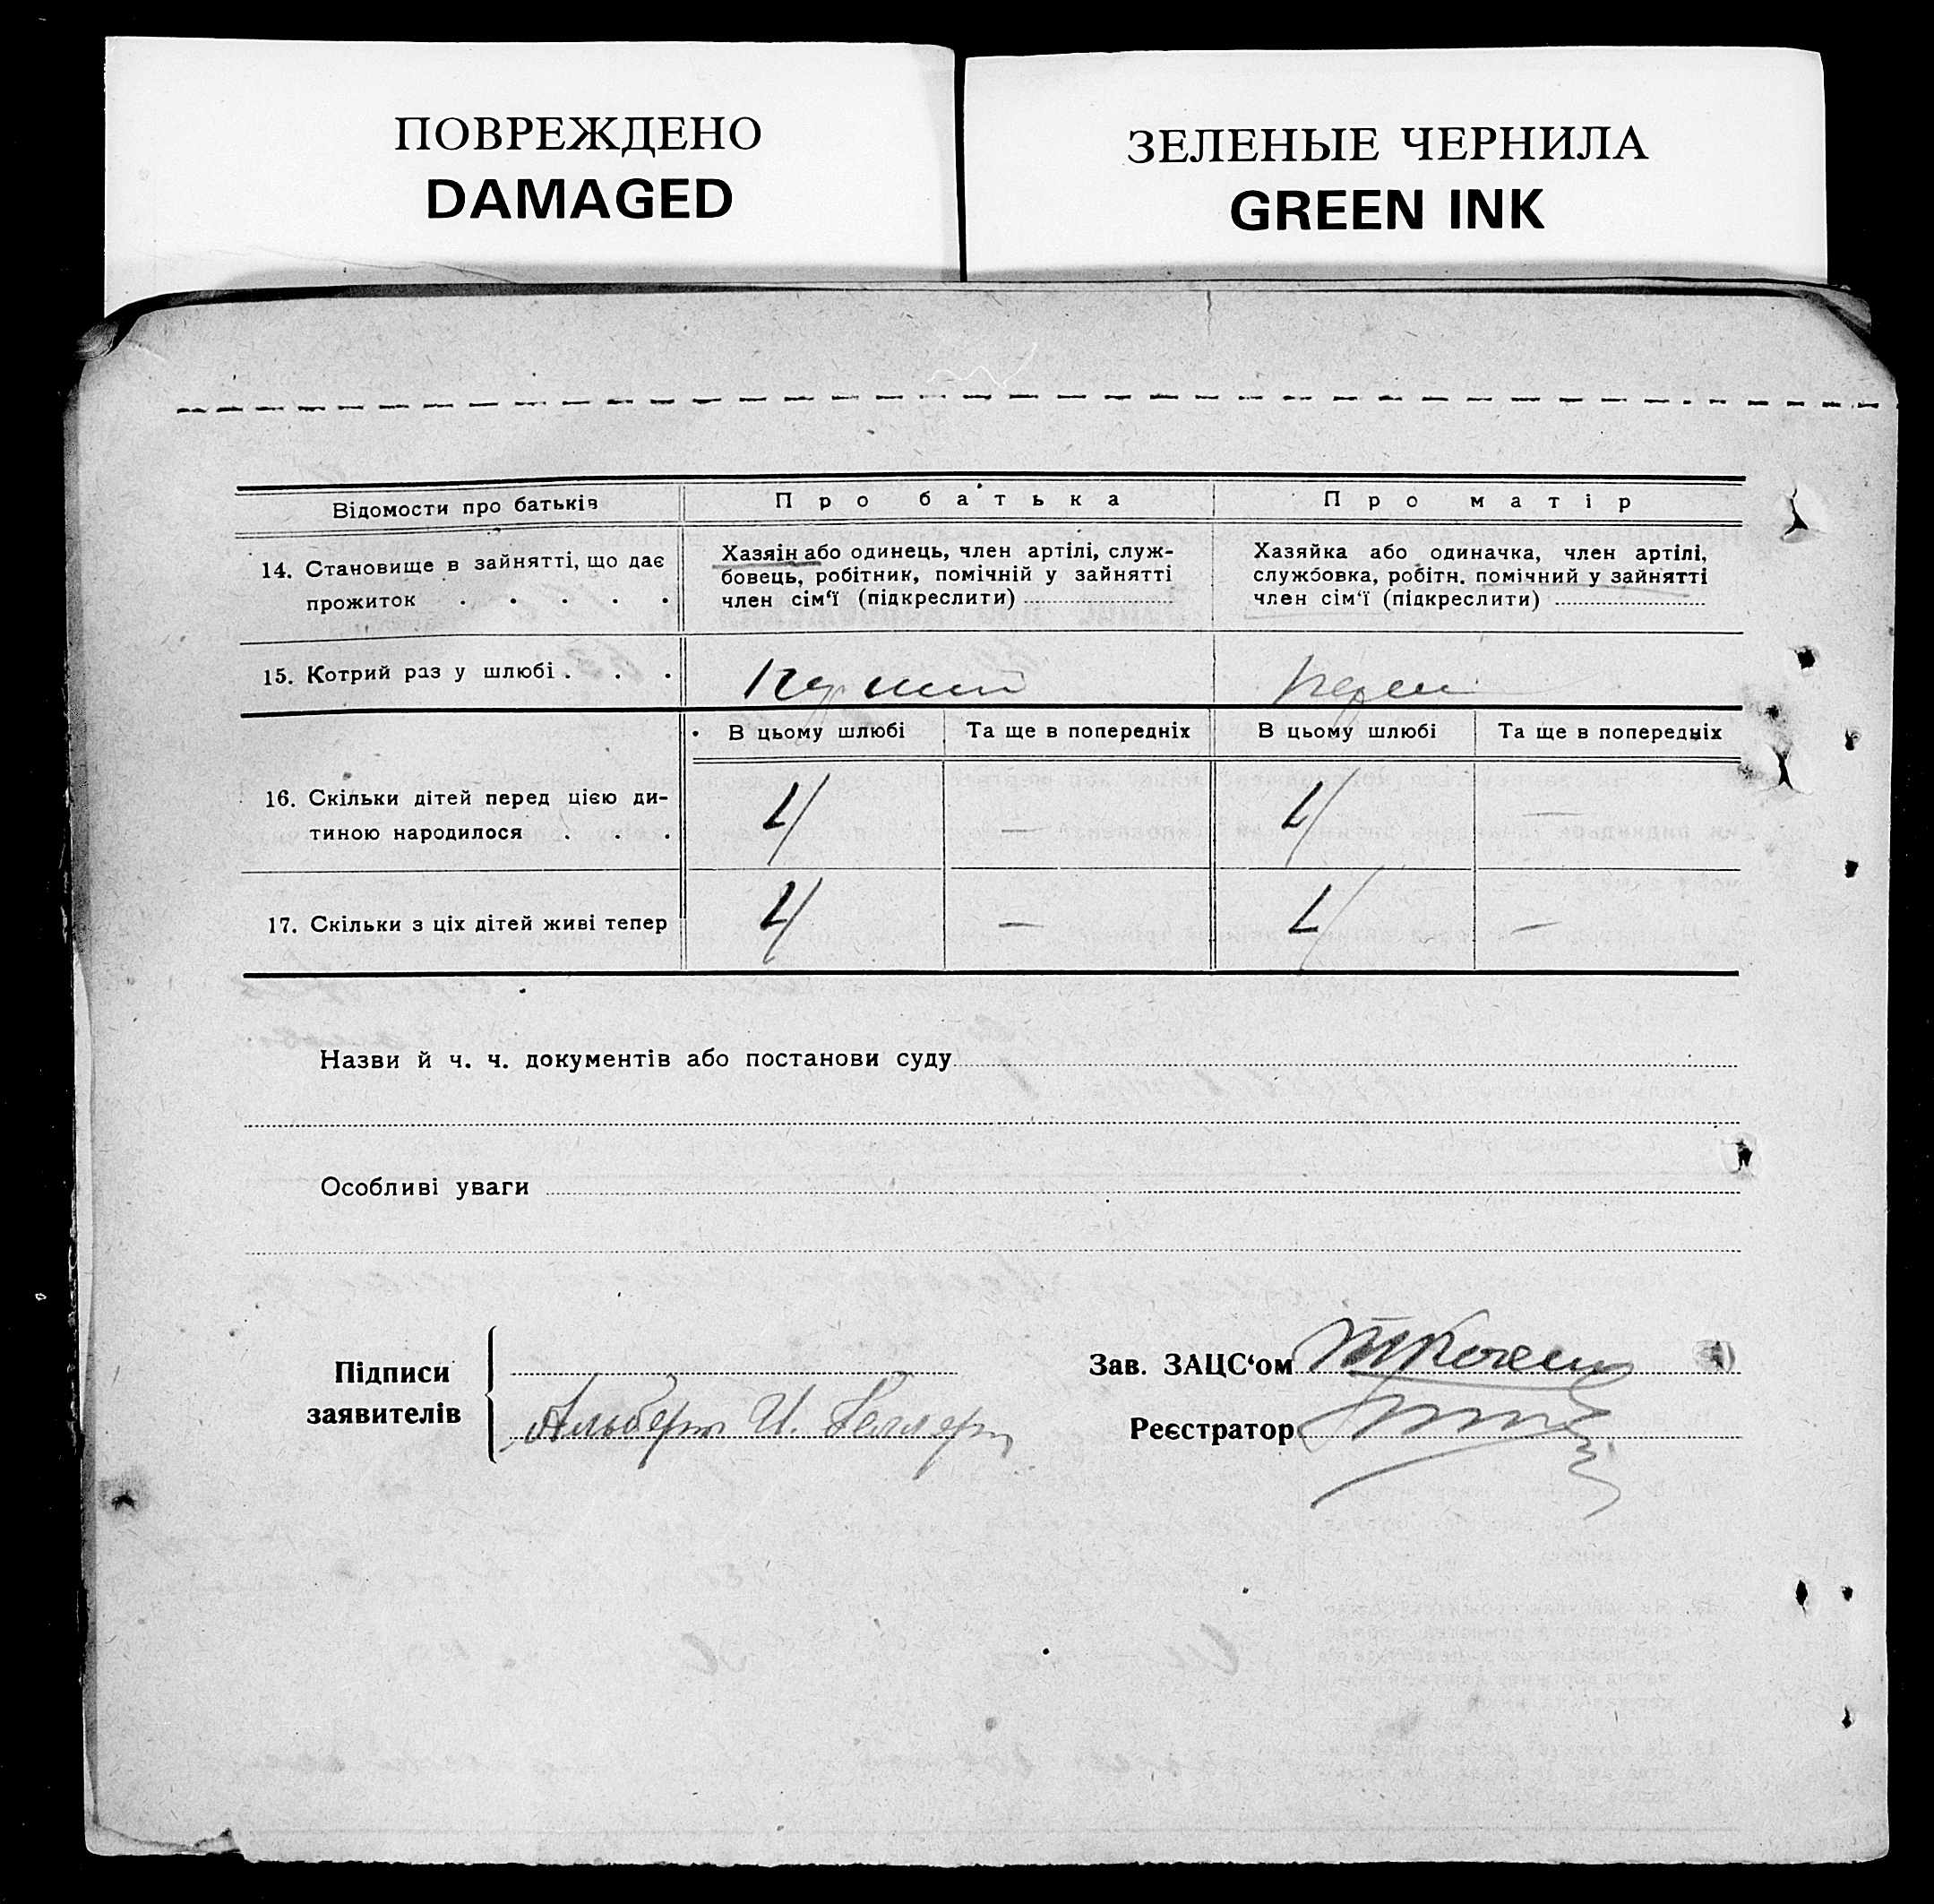 ПОВРЕЖДЕНО
DAMAGED
ЗЕЛЕНЫЕ ЧЕРНИЛА
GREEN INK
Відомости про батьків
Про батька
Про матір
14. Становище в зайнятті, що дає
прожиток . . . . .
Хазяін або одинець, член артілі, служ-
бовець, робітник, помічній у зайнятті
член сім‘ї (підкреслити)
Хазяйка або одиначка, член артілі,
службовка, робітн. помічний у зайнятті
член сім‘ї (підкреслити)
15. Котрий раз у шлюбі . . .
В цьому шлюбі
Та ще в попередніх
В цьому шлюбі
Та ще в попередніх
16. Скільки дітей перед цією ди-
тиною народилося . . .
4
—
4
—
17. Скільки з ціх дітей живі тепер
4
—
4
—
Назви й ч. ч. документів або постанови суду
Особливі уваги
Підписи
заявителів
Альберт И.
Зав. ЗАЦС‘ом
Реєстратор